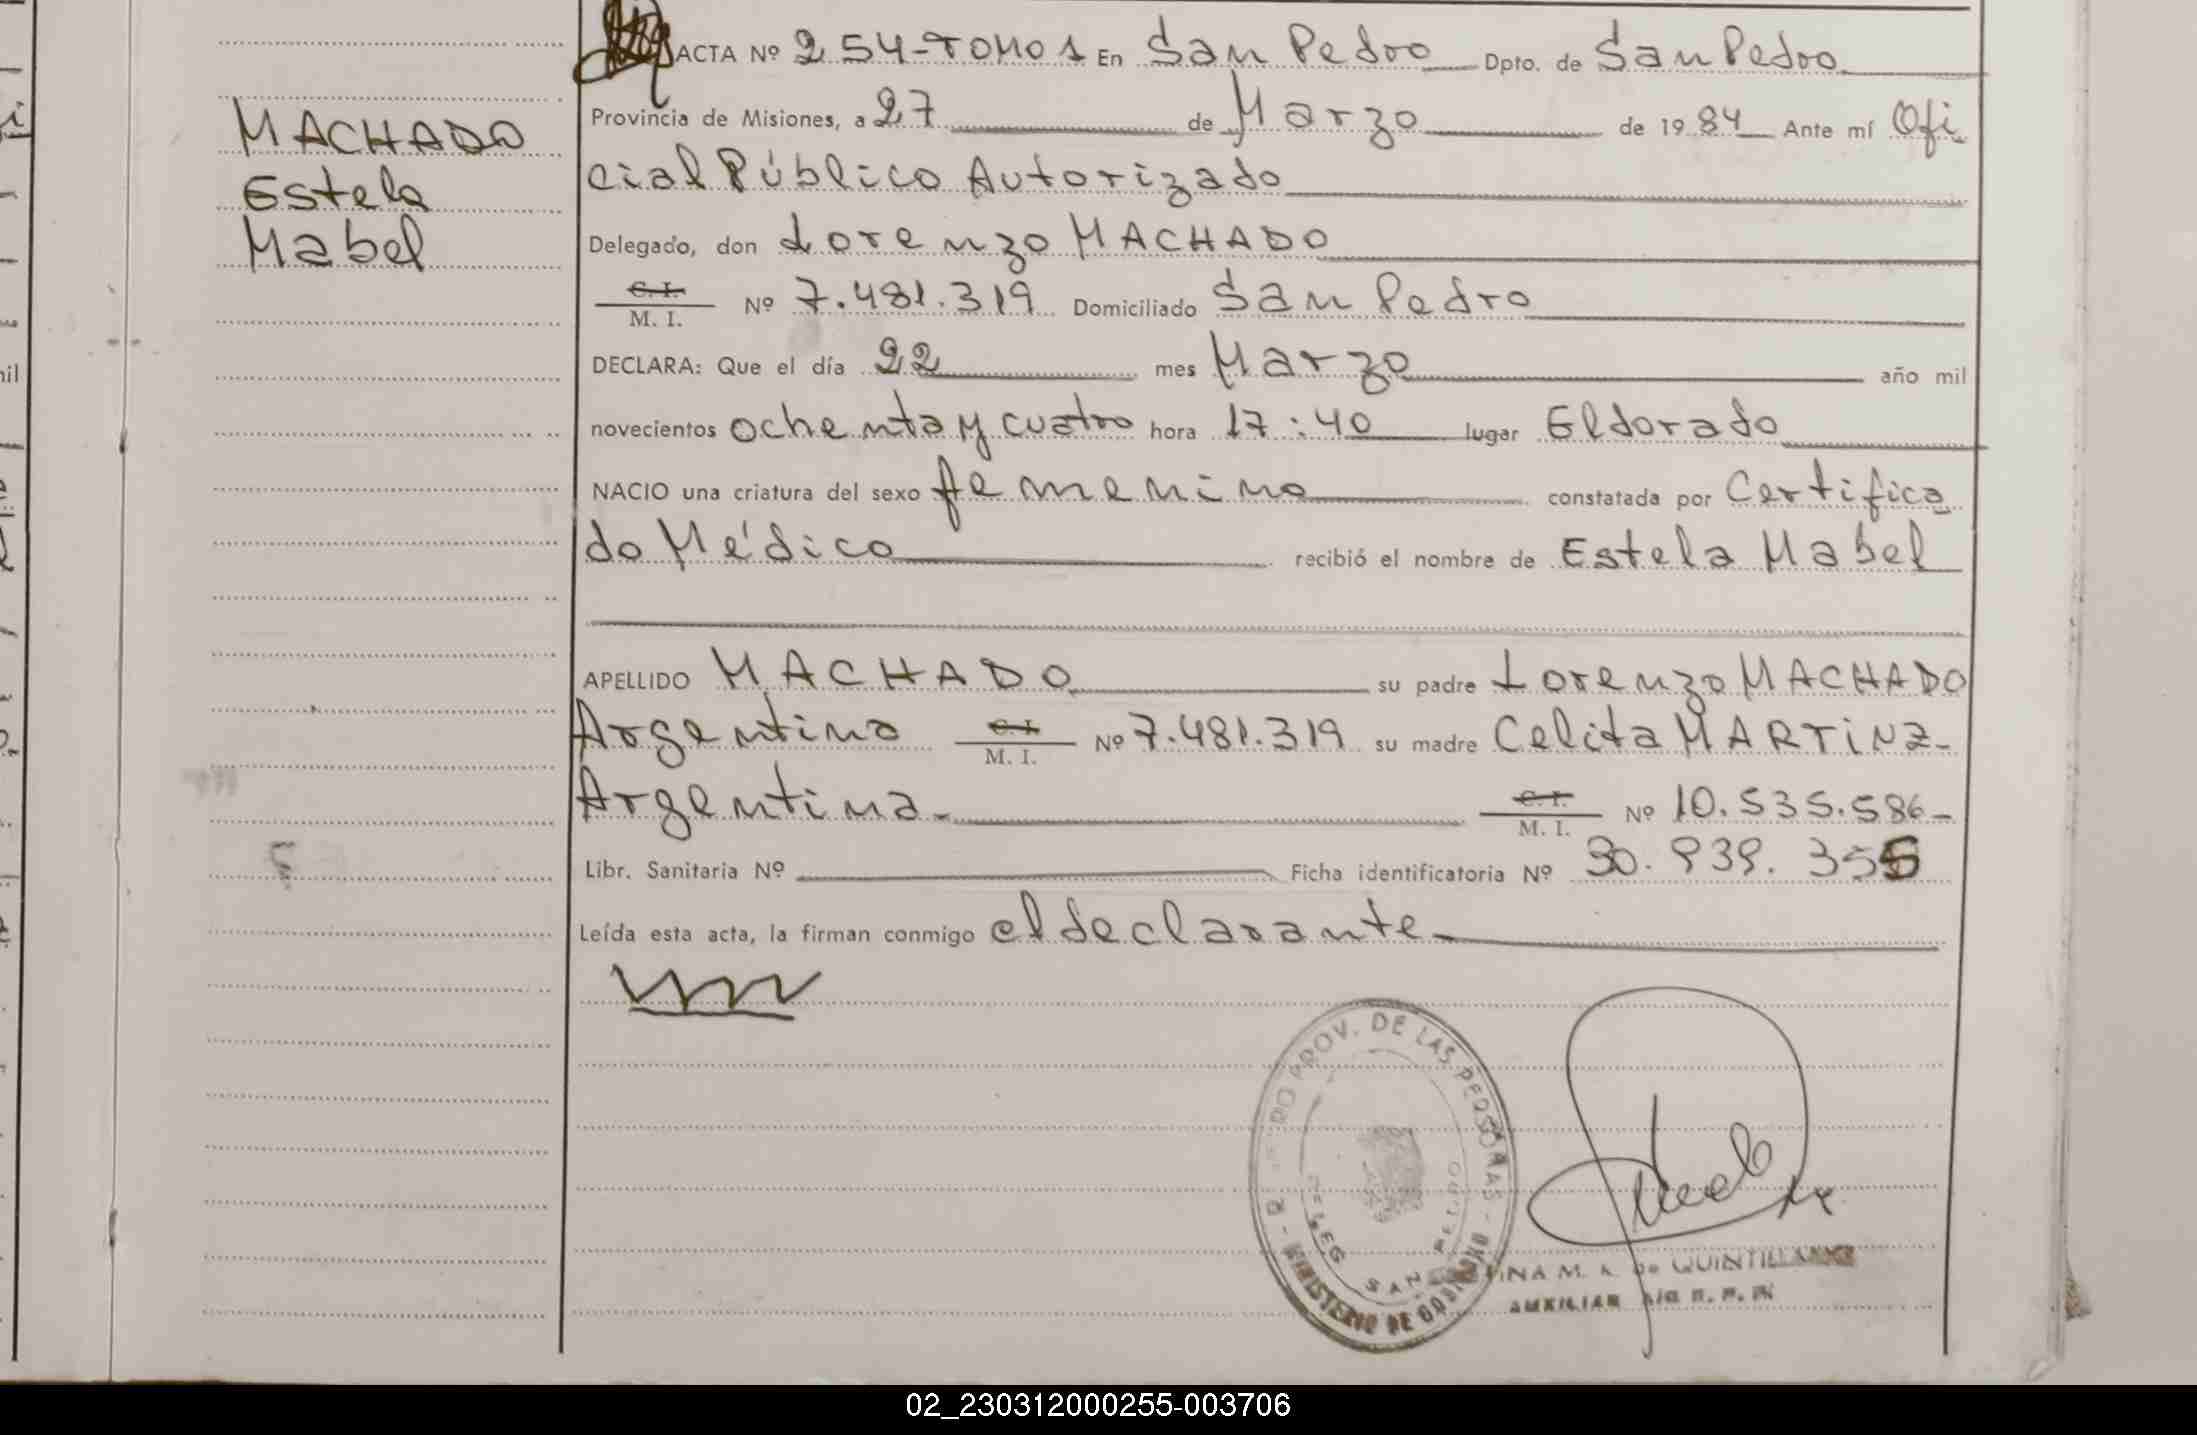 ACTA Nº 254-TOMO 1 En San Pedro Dpto. de San Pedro
Provincia de Misiones, a 27 de Marzo de 1984 Ante mí Ofi
cial Público Autorizado
Delegado, don Lorenzo MACHADO
C. I. M. I. Nº 7.481.319 Domiciliado San Pedro
DECLARA: Que el día 22 mes Marzo año mil
novecientos ochenta y cuatro hora 17:40 lugar Eldorado
NACIO una criatura del sexo femenino constatada por Certifica
do Médico recibió el nombre de Estela Mabel
APELLIDO MACHADO su padre Lorenzo MACHADO
Argentino C. I. M. I. Nº 7.481.319 su madre Celita MARTiNZ-
Argentina.- C. I. M. I. Nº 10.535.586-
Libr. Sanitaria Nº Ficha identificatoria Nº 30.939.356
Leída esta acta, la firman conmigo el declarante
MACHADO
Estela
Mabel
PROV. DE LAS PERSONAS
MINISTERIO DE GOBIERNO
DELEG SAN PEDRO
M. A. de QUINTILLAN
AUXILIAR
02_230312000255-003706